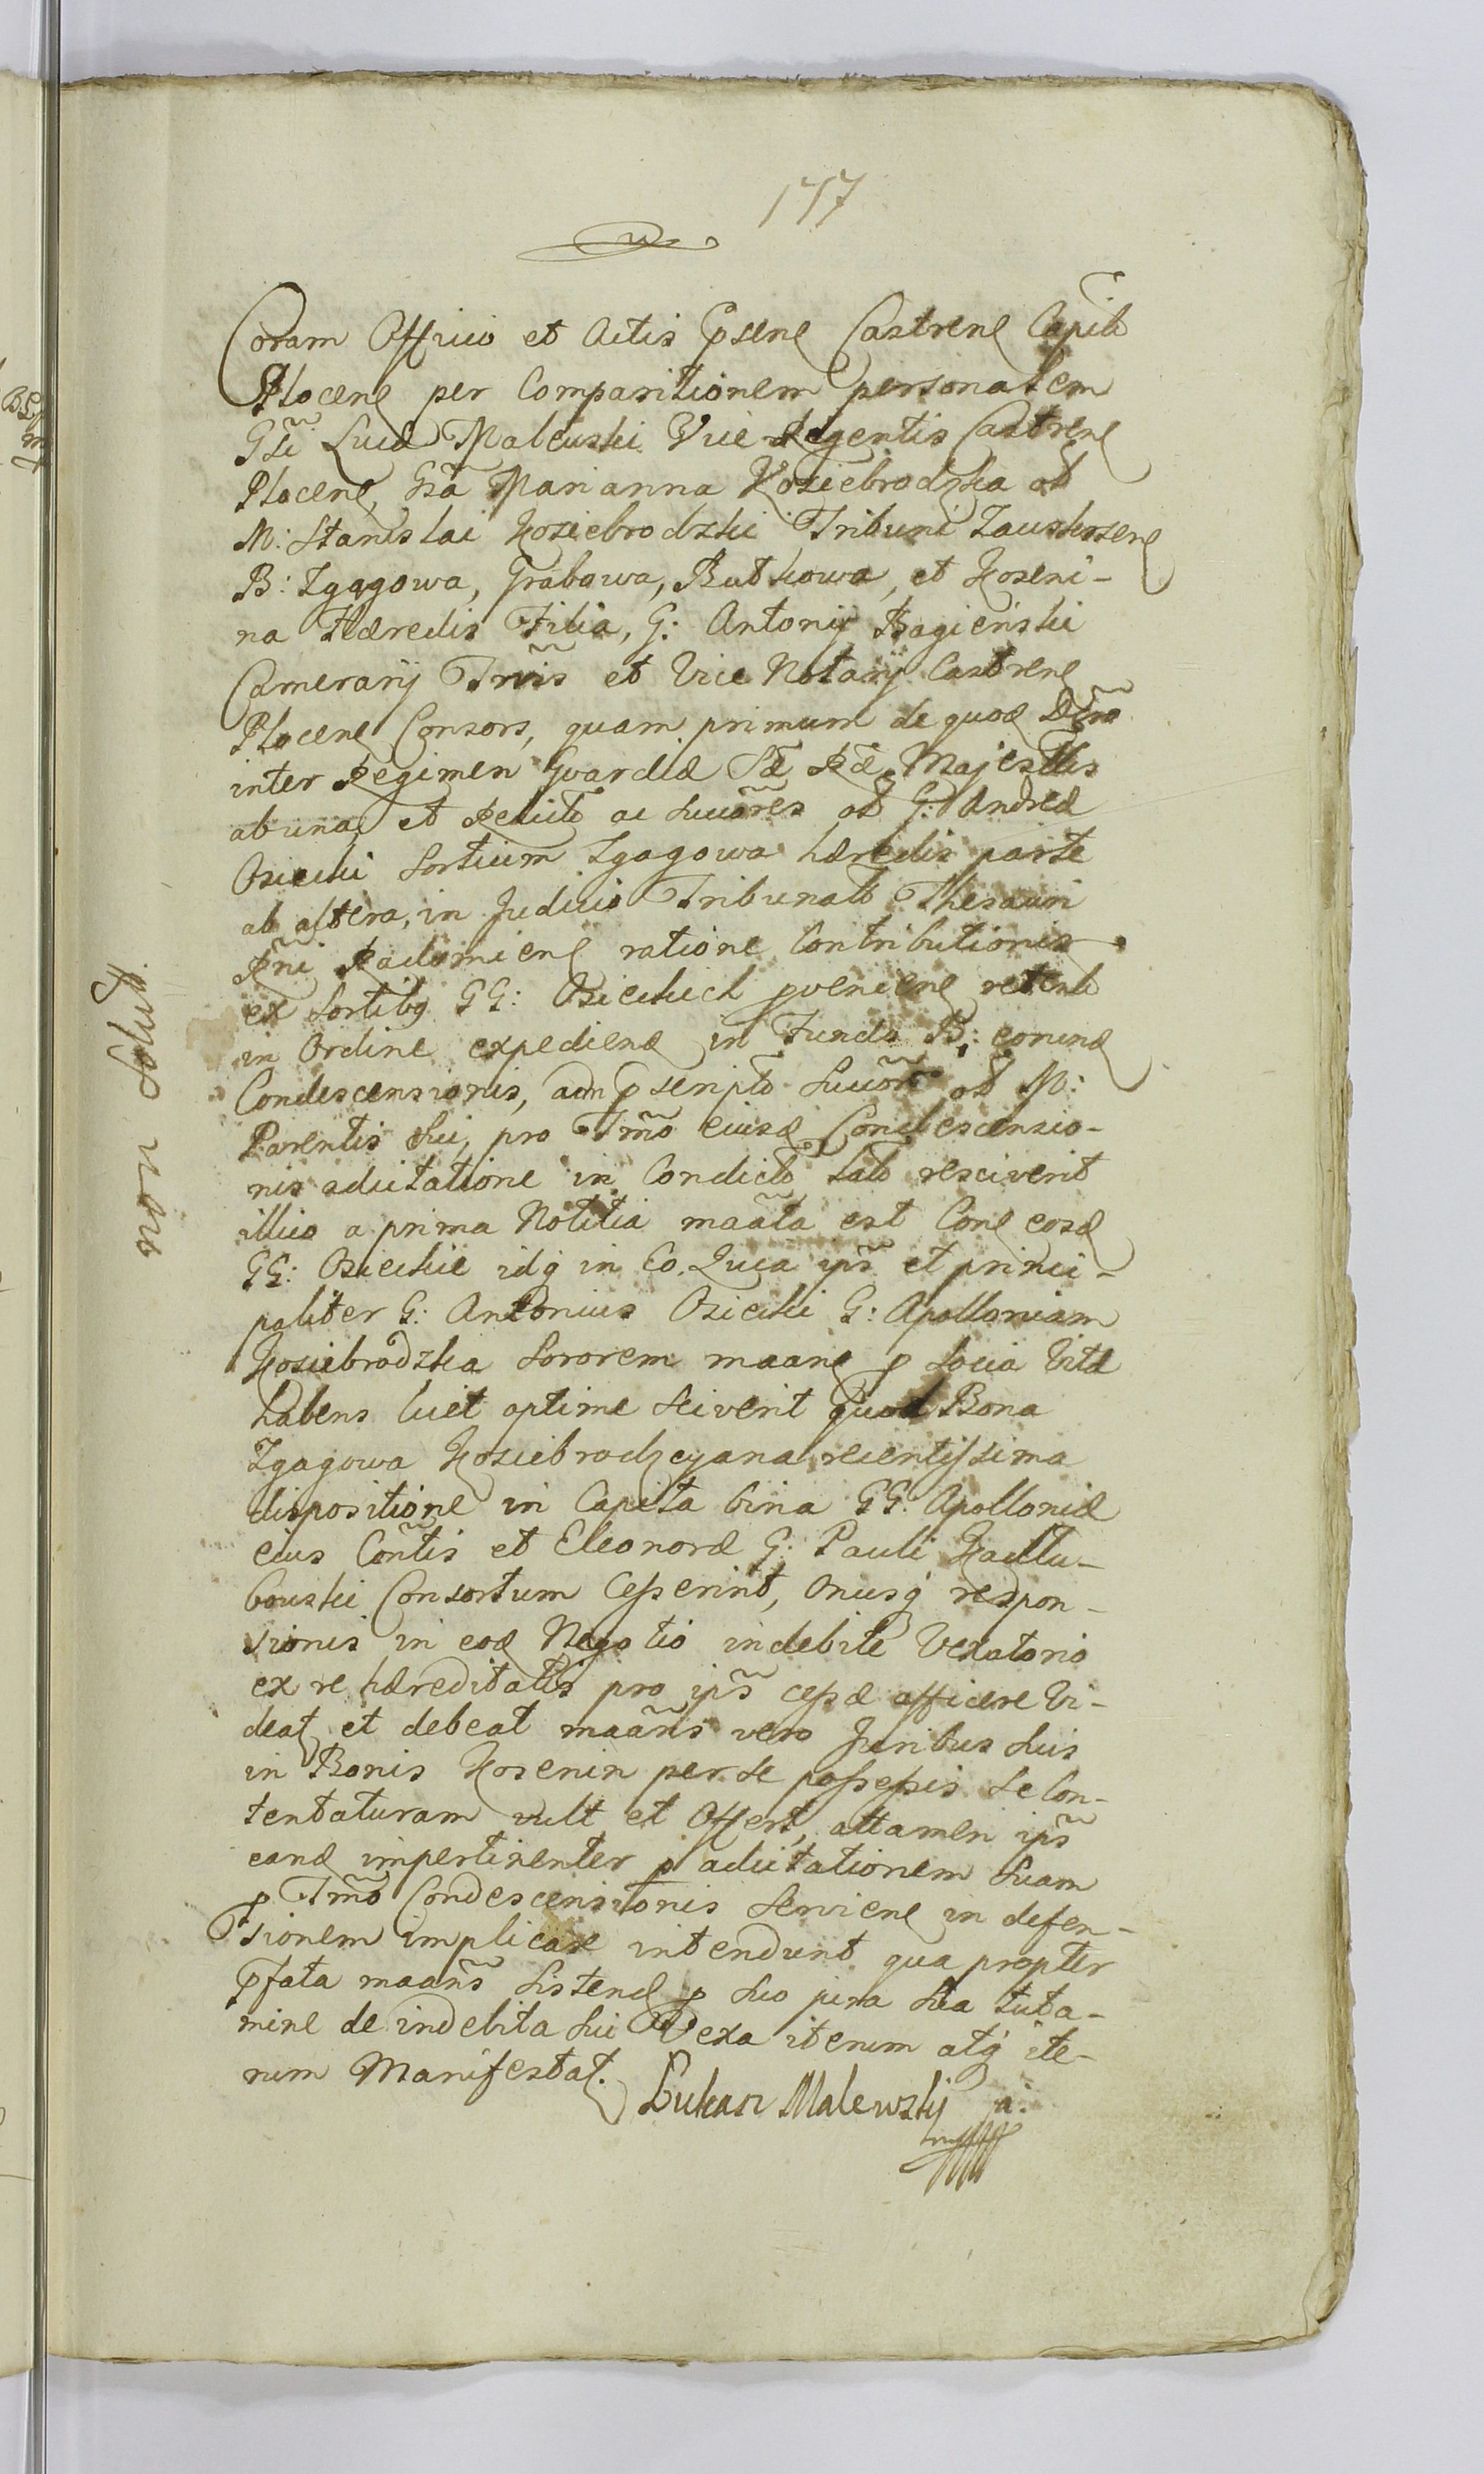 177
Coram Officio et Actis Psene Castrene Capitu
Plocene per Comparitionem personalem
Gsi Lucæ Maleuski Vice Regentis Castrene
Plocene, Gsa Marianna Kosiebrodzka ol
M: Stanislai Kosiebrodzki Tribuni Zauskrsene
B: Zgagowa, Grabowa, Rutkowa, et Koseni-
na Hæredis Filia, G: Antonij Bagieński
Camerarij Trris et Vice Notarij Castrene
Plocene Consors, quam primum de quoe Dcro
inter Regimen Gvardiæ Sæ Ræ Majesttis
ab una, et Relictō ac Succōres ol G: Andreæ
Osiecki Sortium Zgagowa hæredis parte
ab altera, in Judicio Tribunals Thesauri
Rni Radomiene ratione Contributionis
ex Sortibg GG: Osieckich pveniene retent
in Ordine expediene in Fundo B: eorund
Condescensionis, adm p script Succōre ol M:
Parentis Sui, pro Tmō eiusd Condescensio-
nis adcitatione in Condict lato resciverit
illico a prima Notitia maāta est Cone eosd
GG: Osieckie idq in Eo. Quia ips et princi-
paliter G: Antonius Osiecki G: Apolloniam
Kosiebrodzka Sororem maane p Socia Vitæ
habens licet optime Sciverit quod Bona
Zgagowa Kosiebrodzcyana recentissima
dispositione in Capita bina GG: Apolloniæ
eius Contis et Eleonoræ G: Pauli Kadłu-
bouski Consortum Cesserint, Onusq respon-
sionis in eod Negotio indebite Vexatorio
ex re hæreditatis pro ips cessæ afficere Vi-
deat, et debeat maans vero Juribus Suis
in Bonis Kosenin per se possessis Se Con-
tentaturam vult et Offert, attamen ips
eand impertinenter p adcitationem Suam
p Tmō Condescensionis Serviene in defen-
sionem implicare intendunt qua propter
pfata maans Sistend p Suo jura Sua tuta-
mine de indebita Sui Vexa iterum atq ite-
rum Manifestat.
Lukasz Malewsky
non Solut